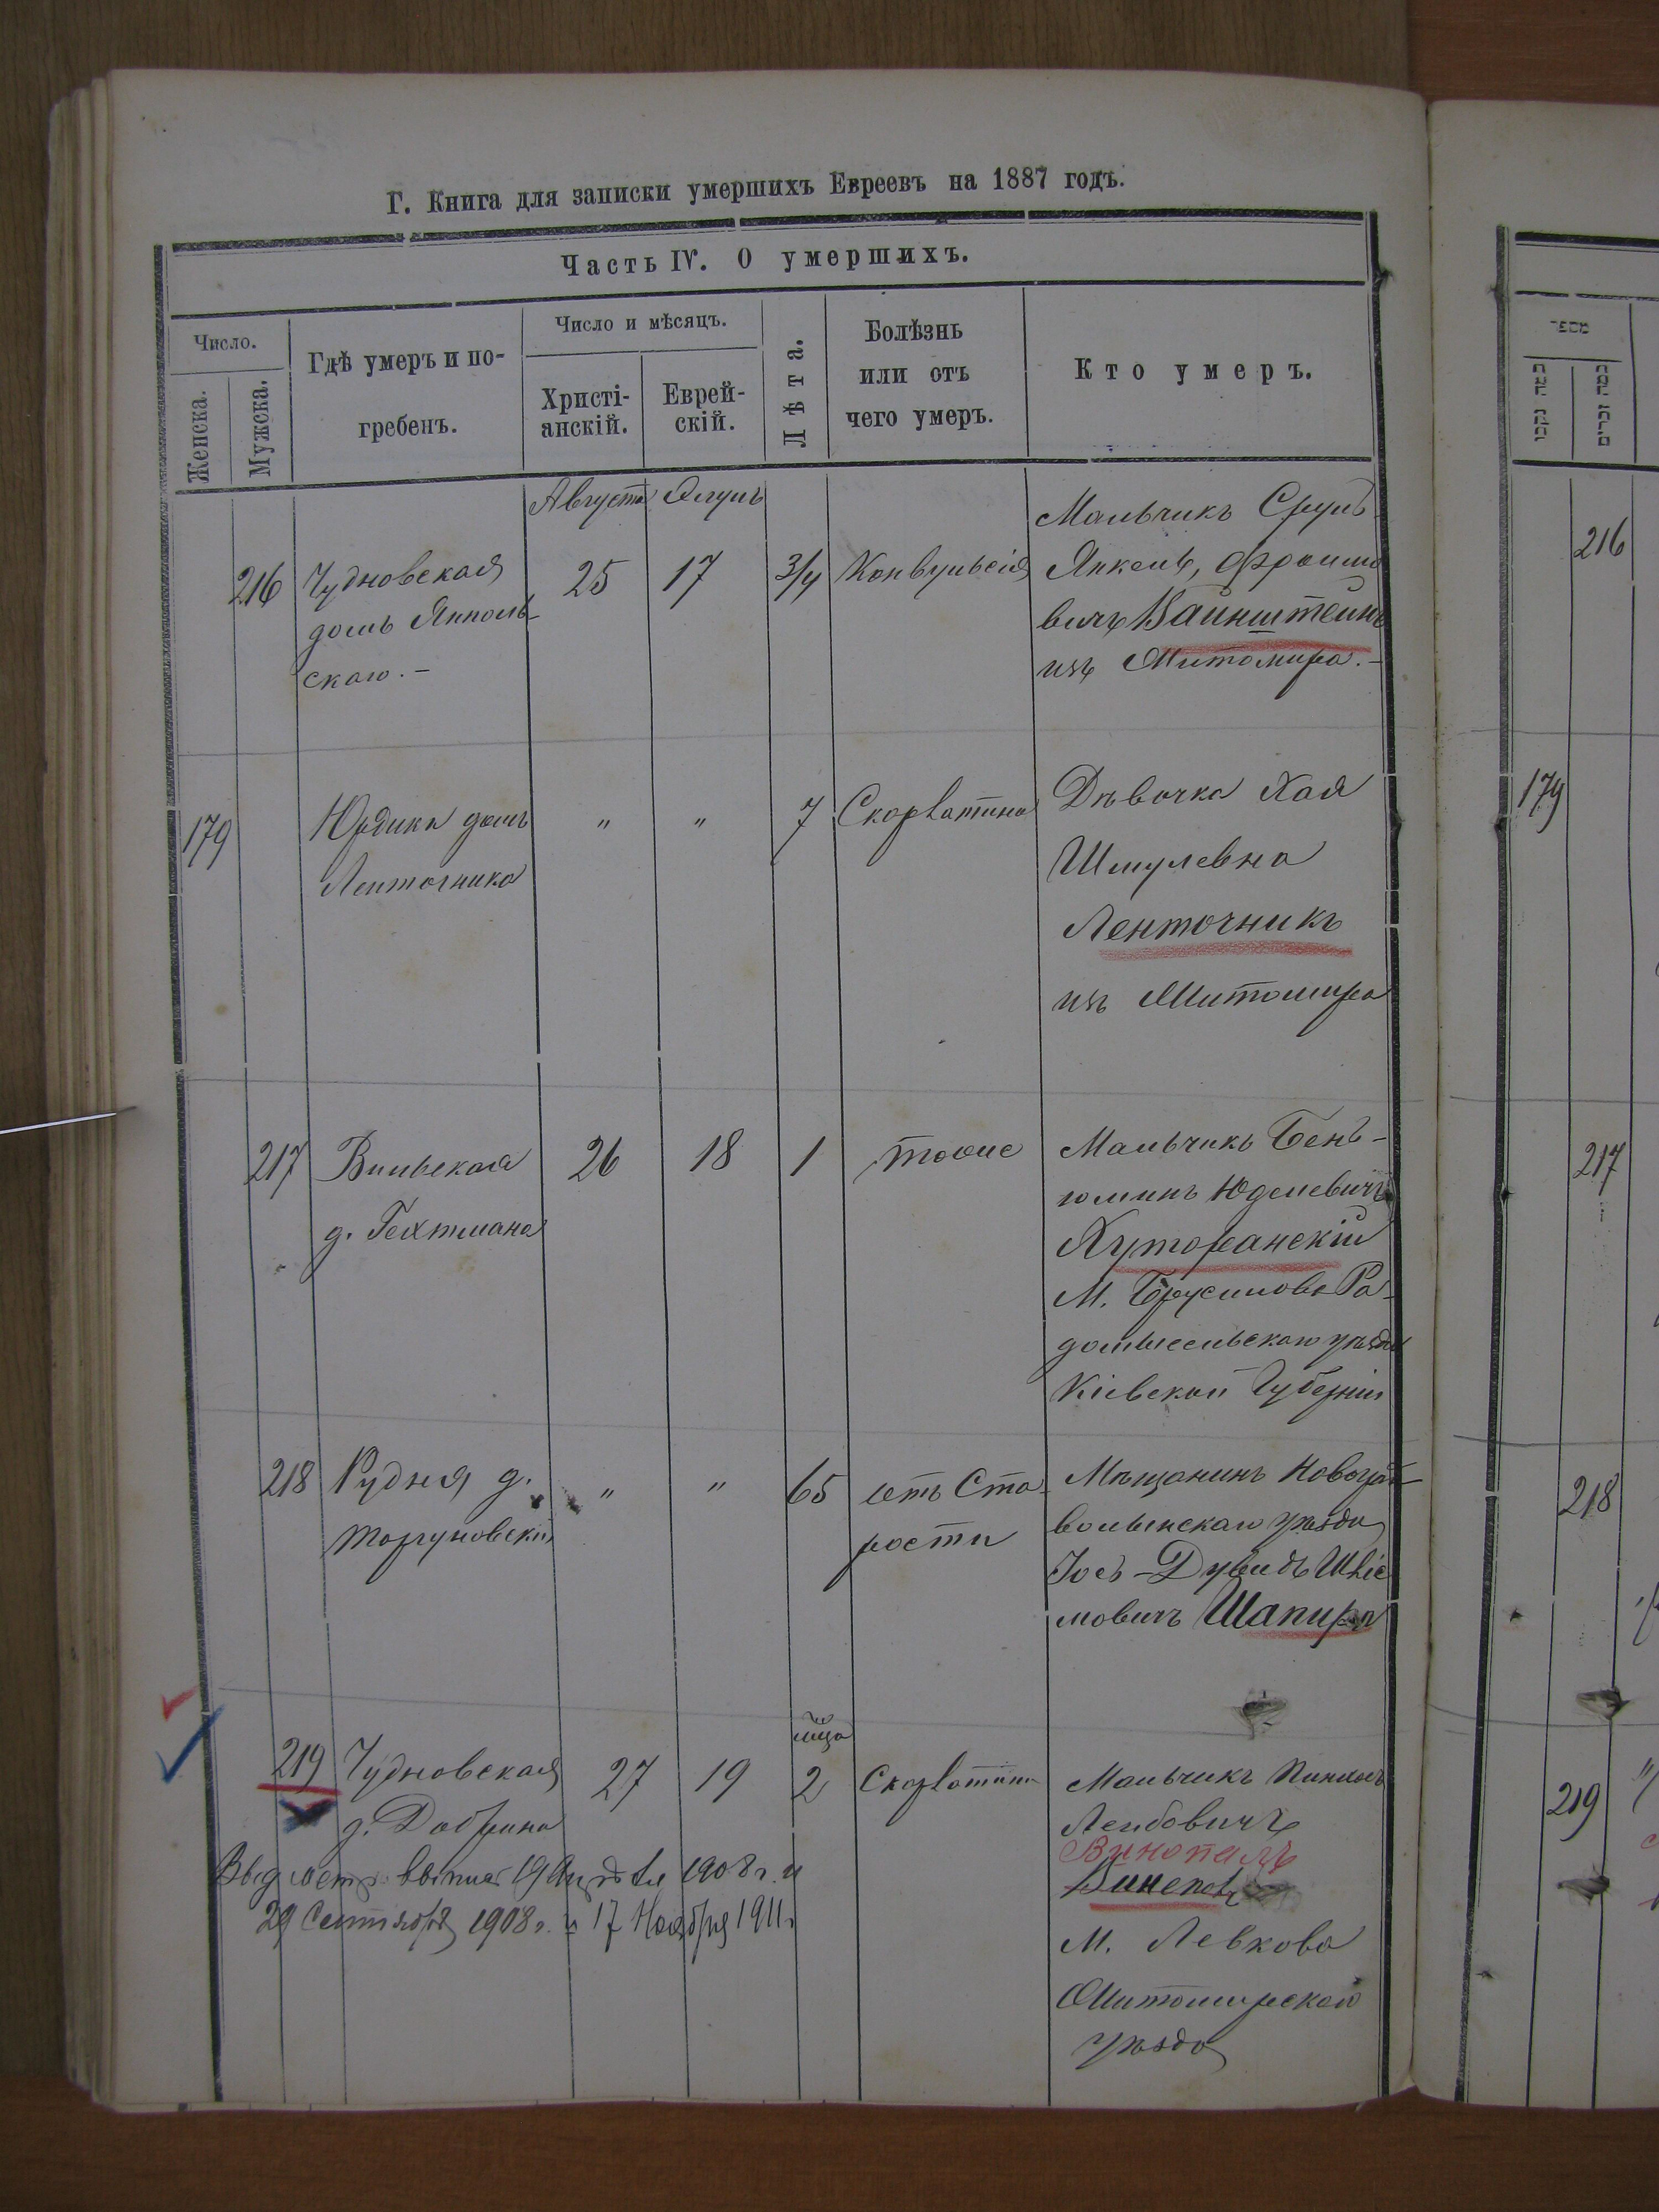 Г. Книга для записки умершихъ Евреевъ на 1887 годъ.
Часть IV. О умершихъ.
Число.
Женска.
Мужска.
Гдѣ умеръ и по-
гребенъ.
Число и мѣсяцъ.
Христі-
анскій.
Еврей-
скій.
Лѣта.
Болѣзнь
или отъ
чего умеръ.
Кто умеръ.
Августа Элулъ
216
Чудновская
домъ Ямполь-
скаго. -
25
17
3/4
Конвульсія
Мальчикъ Сруль
Янкель, Фроимо
вичъ Вайнштейнъ
изъ Житомира. -
179
Юрдика домъ
Ленточника
"
"
7
Скарлатина
Дѣвочка Хая
Шмулевна
Ленточникъ
изъ Житомира
217
Вильская
д. Гехтмана
26
18
1
тоже
Мальчикъ Бень-
юминъ Юделевичъ
Хуторанскій
М. Брусилова Ра-
домысльскаго уѣзда
Кіевской Губерніи
218
Рудня д.
Торчуновскій
"
"
65
отъ Ста
рости
Мѣщанинъ Новоград-
волынскаго уѣзда
Іось-Дувидъ
мовичъ Шапиро
219
Чудновская
д. Добрина
27
19
мца
2
Скарлатина
Мальчикъ Пинхасъ
Лейбовичъ
Винопалъ
М. Левкова
Житомирскаго
уѣзда
Выд метр. выпис 19 1908 г. и
29 Сентября 1908 г. и 17 Ноября 1911 г
מספר
216
179
217
218
219